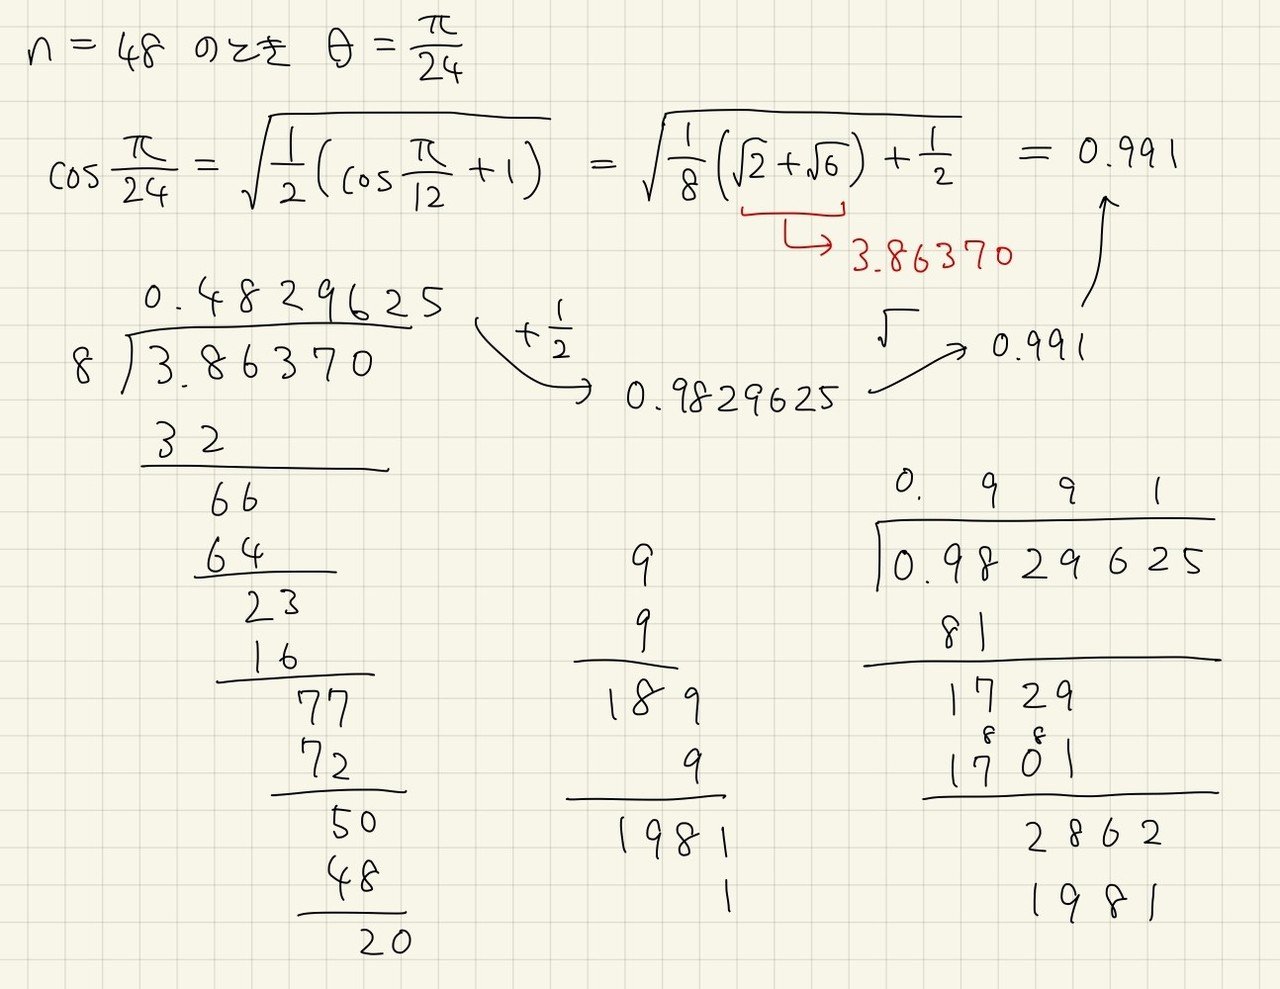 n = 48 のとき θ = π/24
cos π/24 = √(1/2 (cos π/12 + 1)) = √(1/8 (√2 + √6) + 1/2) = 0.991
3.86370
0.4829625
8 ) 3.86370
32
66
64
23
16
77
72
50
48
20
+ 1/2
0.9829625
√
0.991
9
9
189
9
1981
1
0. 9 9 1
0.98 29 625
81
17 29
8 8
17 01
2862
1981